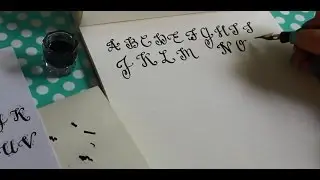 A B C D E F G H I S
J K L M N O
J K
U V